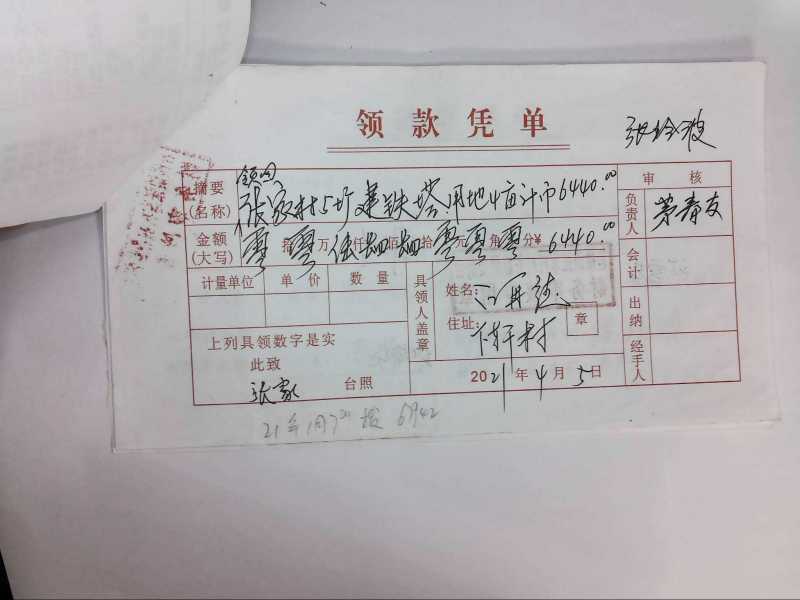 领款凭单
张玲波
领回
摘要(名称) 张家村5圹建铁塔用地4亩计币6440.00
审核
负责人 茅春友
金额(大写) 零拾零万陆仟肆佰肆拾零元零角零分¥6440.00
计量单位 单价 数量
具领人盖章
姓名:
住址: 村
章
会计
出纳
经手人
上列具领数字是实
此致
张家 台照
2021年4月5日
21年 6942